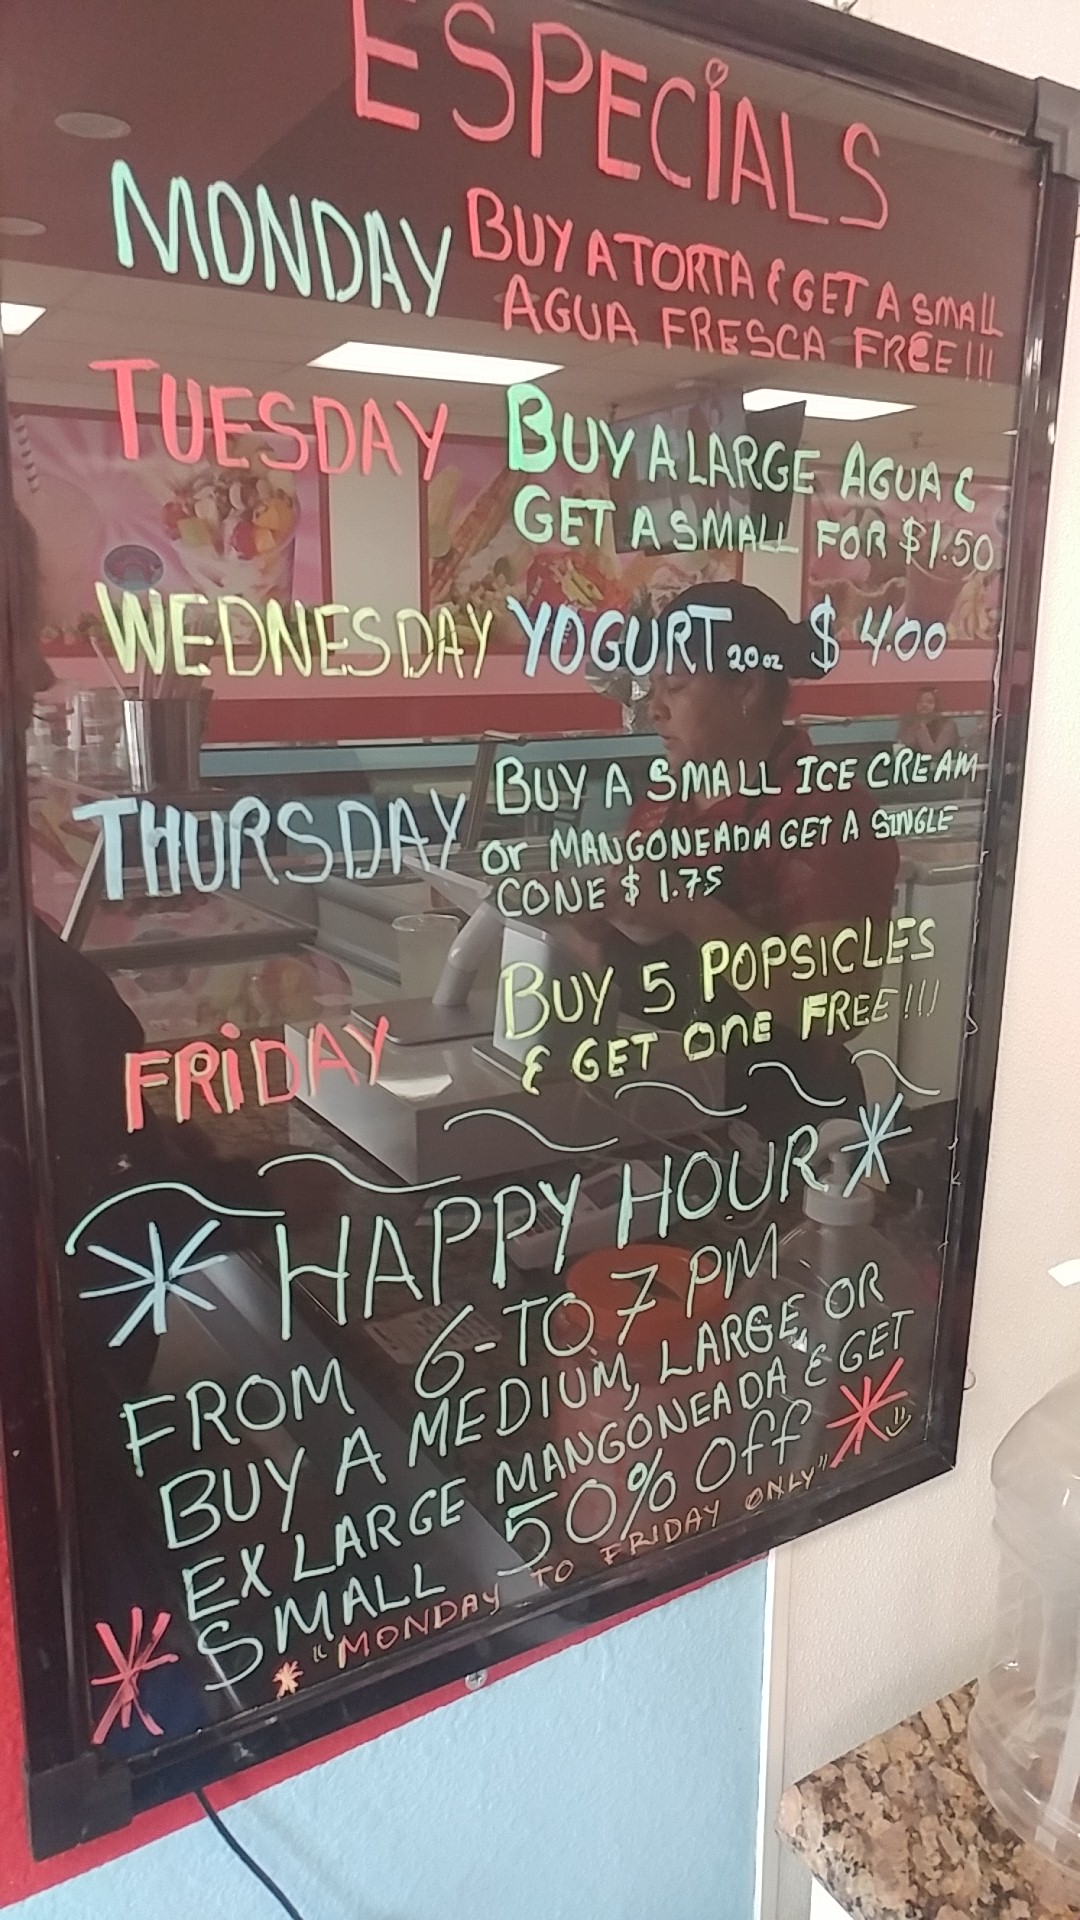 ESPECIALS
MONDAY BUY A TORTA & GET A SMALL
AGUA FRESCA FREE!!!
TUESDAY BUY A LARGE AGUA &
GET A SMALL FOR $1.50
WEDNESDAY YOGURT 20oz $ 4.00
THURSDAY BUY A SMALL ICE CREAM
or MANGONEADA GET A SINGLE
CONE $ 1.75
FRIDAY BUY 5 POPSICLES
& GET ONE FREE!!!
* HAPPY HOUR *
FROM 6-TO 7 PM
BUY A MEDIUM, LARGE, OR
EX LARGE MANGONEADA & GET
SMALL 50% OFF
* "MONDAY TO FRIDAY ONLY"